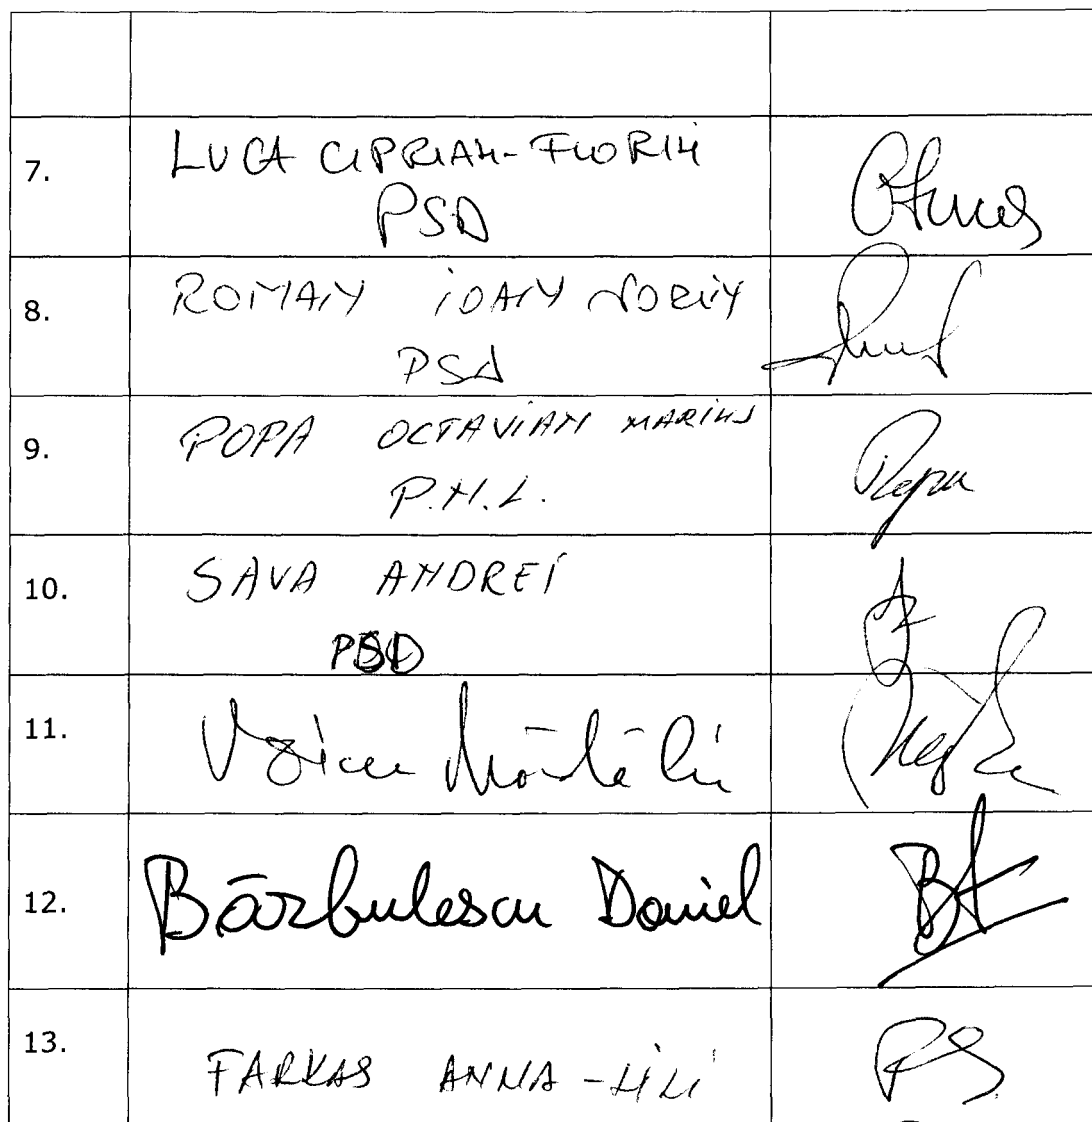 7. LUCA CIPRIAN-FLORIN
PSD
8. ROMAN IOAN SORIN
PSD
9. POPA OCTAVIAN MARIUS
P.N.L.
10. SAVA ANDREI
PSD
11.
12. Bărbulescu Daniel
13. FARKAS ANNA-LILI